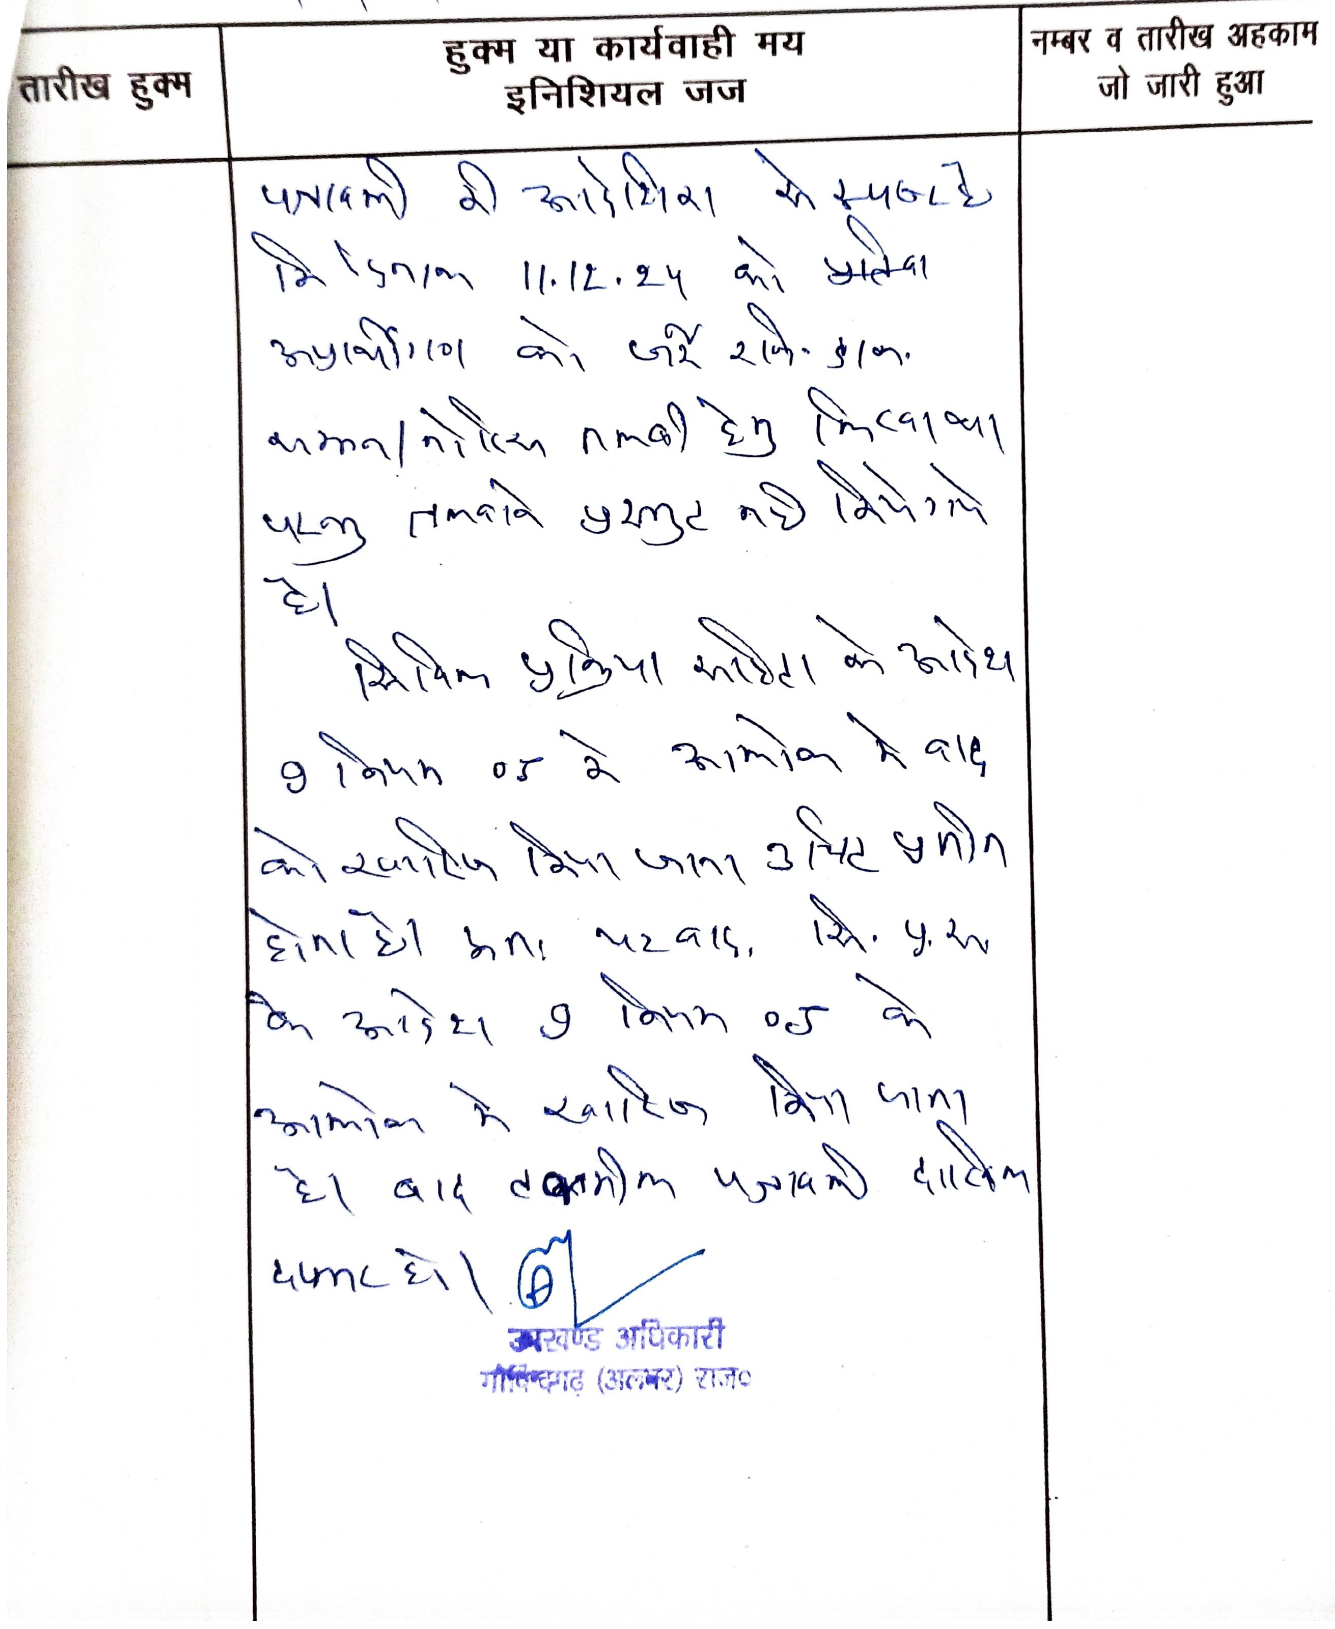 तारीख हुक्म
हुक्म या कार्यवाही मय
इनिशियल जज
नम्बर व तारीख अहकाम
जो जारी हुआ
पत्रावली की आदेशिका से स्पष्ट है
कि दिनांक 11.12.24 को
अप्रार्थीगण को जर्ये रजि. डाक.
सम्मन/नोटिस तलबी हेतु भिजवाया
परन्तु तलबाने प्रस्तुत नही किये गये
है।
सिविल प्रक्रिया संहिता के आदेश
9 नियम 05 के आलोक मे वाद
को खारिज किया जाना उचित प्रतीत
होता है। अतः वाद, सि. प्र. स.
के आदेश 9 नियम 05 के
आलोक मे खारिज किया जाता
है। बाद तकमील पत्रावली दाखिल
दफ्तर हो।
उपखण्ड अधिकारी
गोविन्दगढ़ (अलवर) राज०